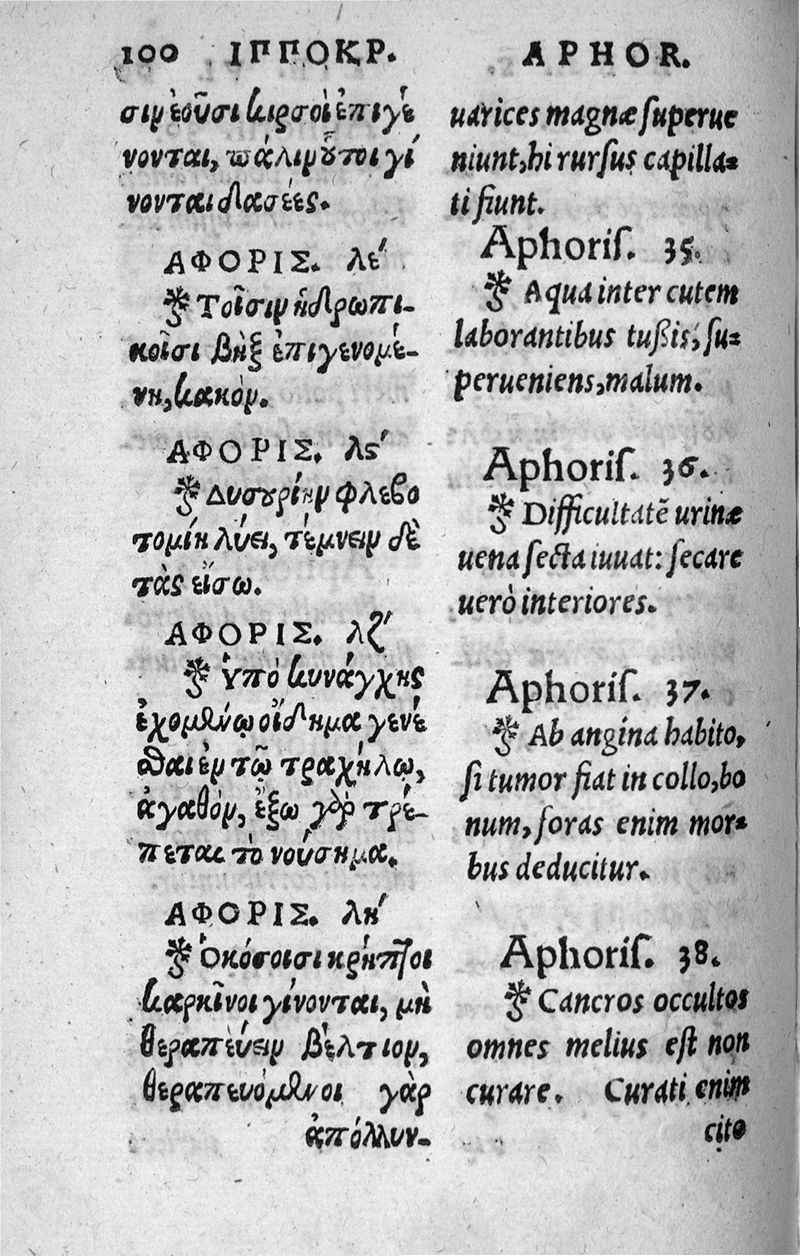 100 ΙΠΠΟΚΡ.
σιν ἐοῦσι κιρσοὶ ἐπιγέ
νονται, πάλιν οὗτοι γί
νονται δασέες.
ΑΦΟΡΙΣ. λέ
Τοῖσιν ὑδρωπι-
κοῖσι βὴξ ἐπιγενομέ-
νη, κακόν.
ΑΦΟΡΙΣ. λϛ
Δυσουρίην φλεβο
τομίη λύει, τέμνειν δὲ
τὰς εἴσω.
ΑΦΟΡΙΣ. λζ
Ὑπὸ κυνάγχης
ἐχομένῳ οἴδημα γενέ
σθαι ἐν τῷ τραχήλῳ,
ἀγαθόν, ἔξω γὰρ τρέ-
πεται τὸ νούσημα.
ΑΦΟΡΙΣ. λή
Ὁκόσοισι κρυπτοὶ
καρκῖνοι γίνονται, μὴ
θεραπεύειν βέλτιον,
θεραπευόμενοι γὰρ
ἀπόλλυν-
APHOR.
uarices magnæ ſuperue
niunt, hi rurſus capilla-
ti fiunt.
Aphoriſ. 35.
Aqua inter cutem
laborantibus tußis, ſu-
perueniens, malum.
Aphoriſ. 36.
Difficultatẽ urinæ
uena ſecta iuuat: ſecare
uerò interiores.
Aphoriſ. 37.
Ab angina habito,
ſi tumor fiat in collo, bo
num, foras enim mor-
bus deducitur.
Aphoriſ. 38.
Cancros occultos
omnes melius eſt non
curare. Curati enim
cito